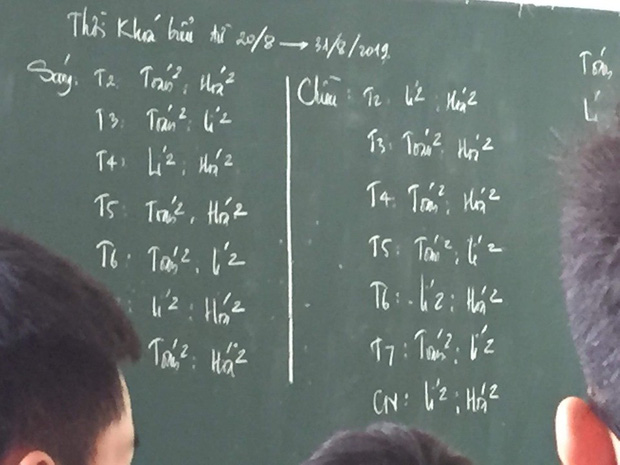 Thời Khoá biểu từ 20/8 → 31/8/2019
Sáng: T2: Toán²; Hoá²
T3: Toán²; Lí²
T4: Lí²; Hoá²
T5: Toán², Hoá²
T6: Toán², Lí²
: Lí²; Hoá²
Toán²; Hoá²
Chiều: T2: Lí²; Hoá²
T3: Toán²; Hoá²
T4: Toán²; Hoá²
T5: Toán²; Lí²
T6: Lí²; Hoá²
T7: Toán²; Lí²
CN: Lí²; Hoá²
Toán
Lí